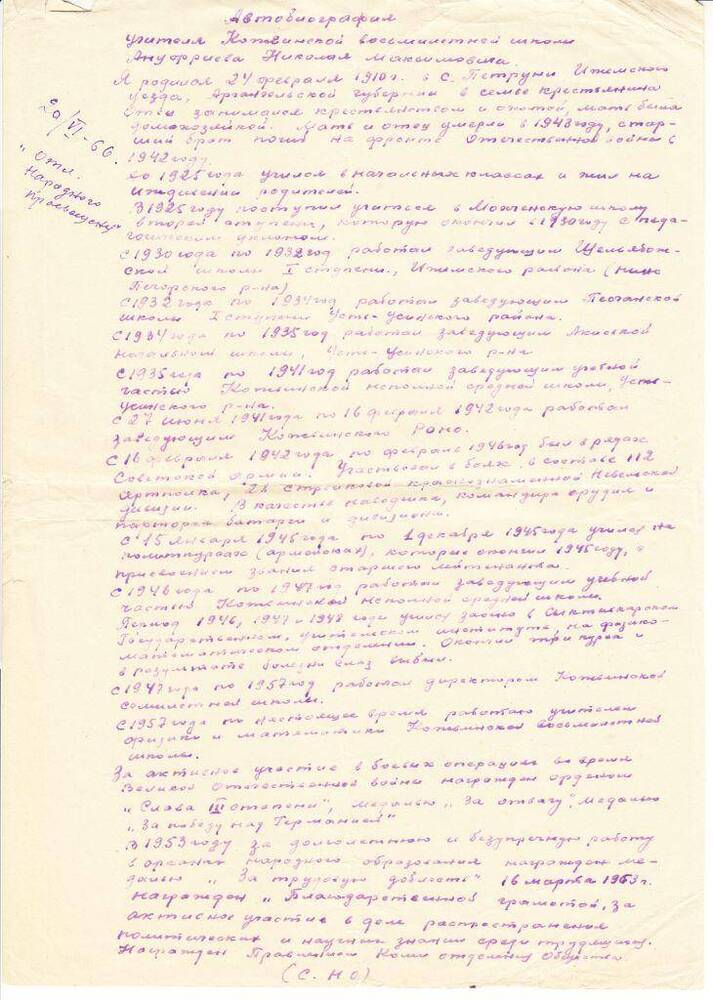 Автобиография
учителя Кожвинской восьмилетней школы
Ануфриева Николая Максимовича.
Я родился 24 февраля 1910 г. в с. Петрунь Ижемского
уезда, Архангельской губернии в семье крестьянина
Отец занимался крестьянством и охотой, мать была
домохозяйкой. Мать и отец умерли в 1943 году, стар-
ший брат погиб на фронте Отечественной войны в
1942 году.
20/VI-66.
"Отл.
Народного
Просвещения"
До 1925 года учился в начальных классах и жил на
иждивении родителей.
В 1925 году поступил учиться в Мохченскую школу
второй ступени, которую окончил в 1930 году с педа-
гогическим уклоном.
С 1930 года по 1932 год работал заведующим Щельябож-
ской школы I ступени., Ижемского района (ныне
Печорского р-на)
С 1932 года по 1934 год работал заведующим Песчанской
школы I ступени Усть-Усинского района.
С 1934 года по 1935 год работал заведующим Акисской
начальной школы, Усть-Усинского р-на
С 1935 года по 1941 год работал заведующим учебной
частью Кожвинской неполной средней школы, Усть-
Усинского р-на.
С 27 июня 1941 года по 16 февраля 1942 года работал
заведующим Кожвинского Роно.
С 16 февраля 1942 года по февраль 1946 год был в рядах
Советской Армии. Участвовал в боях в составе 112
артполка, 28 стрелковой краснознаменной Невельской
дивизии. В качестве наводчика, командира орудия и
парторга батареи и дивизиона.
С 15 января 1945 года по 1 декабря 1945 года учился на
политкурсах (армейских), которые окончил 1945 году, с
присвоением звания старшего лейтенанта.
С 1946 года по 1947 год работал заведующим учебной
частью Кожвинской неполной средней школы.
Период 1946, 1947 и 1948 года учился заочно в Сыктывкарском
Государственном, учительском институте, на физико-
математическом отделении. Окончил три курса и
в результате болезни глаз выбыл.
С 1947 года по 1957 год работал директором Кожвинской
семилетней школы.
С 1957 года по настоящее время работаю учителем
физики и математики Кожвинской восьмилетней
школы.
За активное участие в боевых операциях во время
Великой Отечественной войны награжден орденом
"Слава III степени", медалью "За отвагу", медалью
"За победу над Германией"
В 1953 году за долголетнюю и безупречную работу
в органах народного образования награжден ме-
далью "За трудовую доблесть" 16 марта 1963 г.
награжден "Благодарственной грамотой, за
активное участие в деле распространения
политических и научных знаний среди трудящихся.
Награжден Правлением Коми отделения Общества.
(С. Н. О)